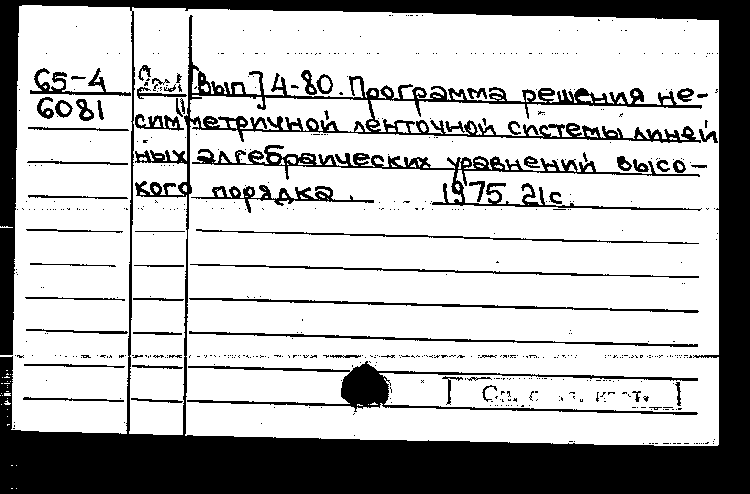 65-4 [Вып.] 4-80. Программа решения не-
6081 симметричной ленточной системы линей
ных алгебраических уравнений высо-
кого порядка. 1975. 21с.